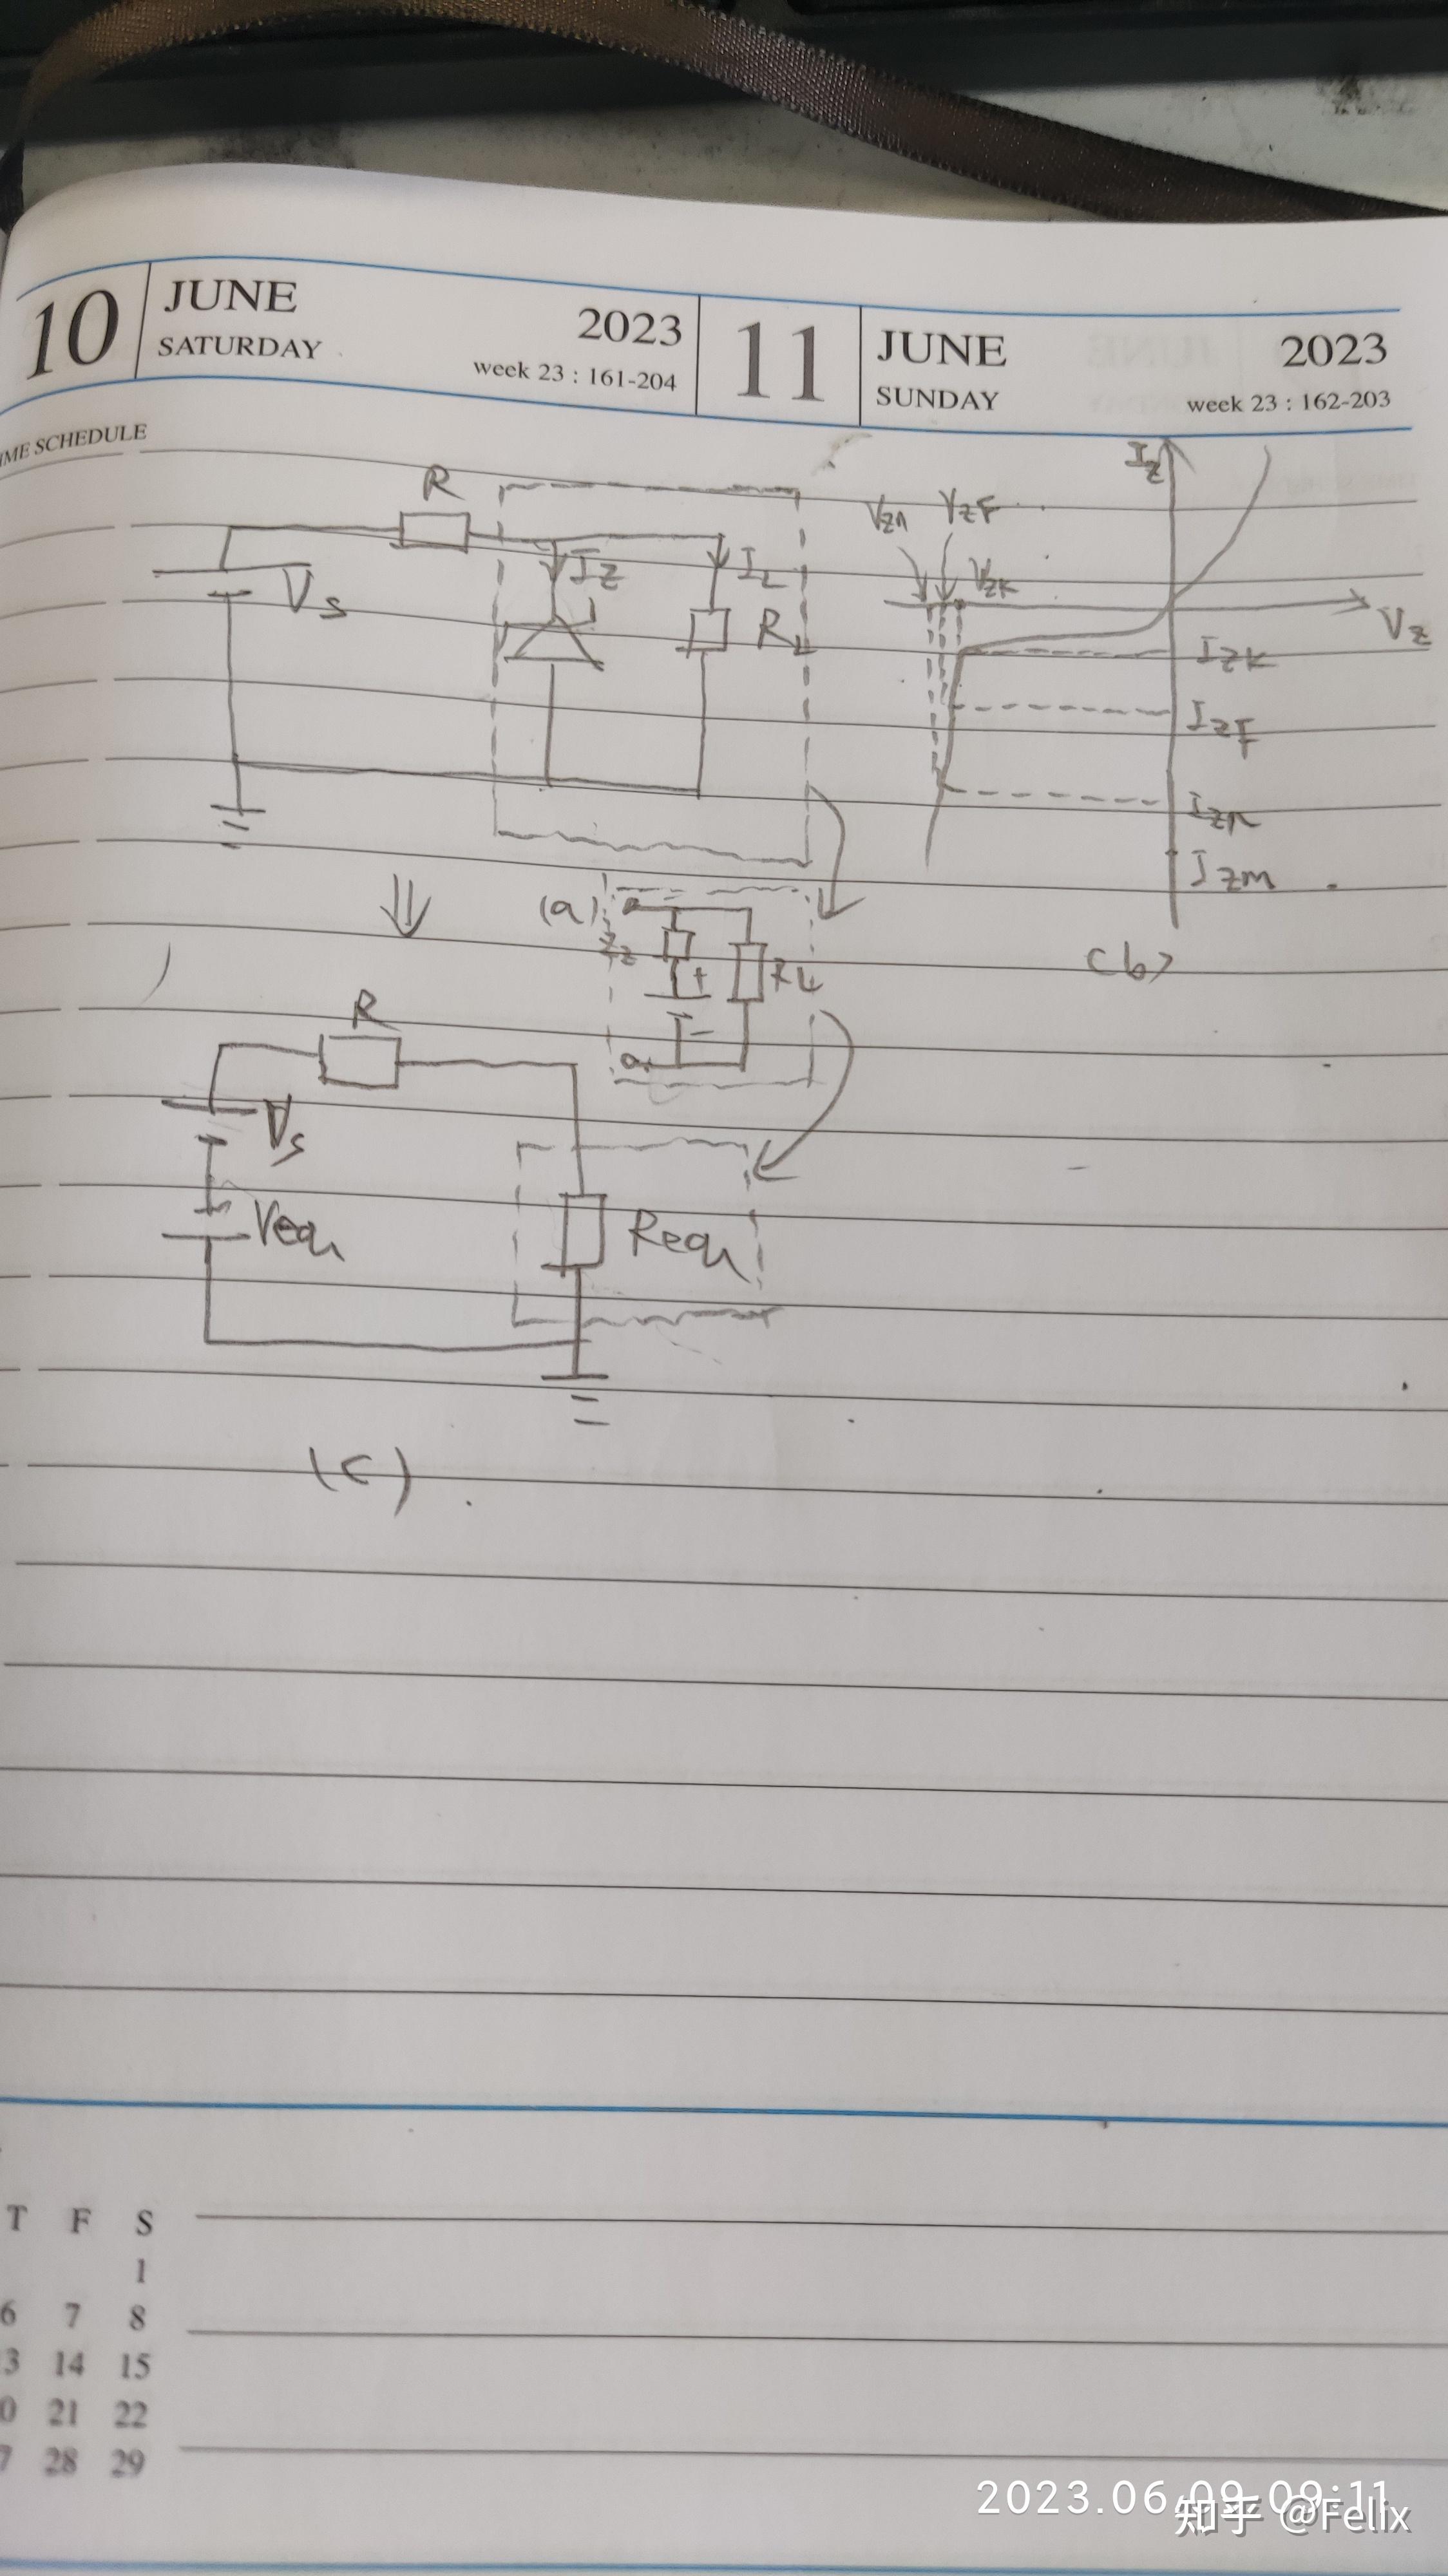 10 JUNE 2023
SATURDAY week 23 : 161-204
11 JUNE 2023
SUNDAY week 23 : 162-203
IME SCHEDULE
R
Vs
Iz
IL
RL
(a)
Iz
VZF
VZK
Vz
IZK
IZF
IZM
(b)
Zz
+
RL
-
R
Vs
Veq
Req
(c)
T F S
1
6 7 8
3 14 15
0 21 22
7 28 29
2023.06.09 09:11
知乎 @Felix